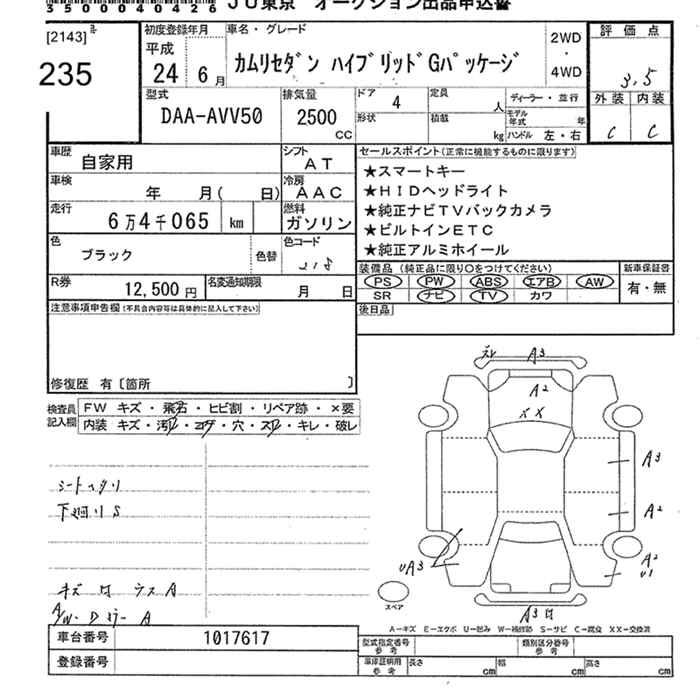 35000040426 JU東京 オークション出品申込書
[2143]
235
初度登録年月
平成
24 6月
車名・グレード
カムリセダン ハイブリッドGパッケージ
2WD
・
4WD
評価点
3.5
外装 内装
C C
型式
DAA-AVV50
排気量
2500
CC
ドア
4
定員
人
ディーラー・並行
形状
積載
kg
モデル年式 年
ハンドル 左・右
車歴
自家用
シフト
AT
車検
年 月( 日)
冷房
AAC
走行
6万4千065 km
燃料
ガソリン
色
ブラック
色替
色コード
218
R券
12,500円
名変通知期限
月 日
セールスポイント(正常に機能するものに限ります)
★スマートキー
★HIDヘッドライト
★純正ナビTVバックカメラ
★ビルトインETC
★純正アルミホイール
装備品(純正品に限り○をつけてください)
PS PW ABS エアB AW
SR ナビ TV カワ
新車保証書
有・無
後日品
注意事項申告欄(不具合内容等は具体的に記入して下さい)
修復歴 有〔箇所 〕
検査員記入欄
FW キズ・飛石・ヒビ割・リペア跡・×要
内装 キズ・汚レ・コゲ・穴・スレ・キレ・破レ
シートヘタリ
下廻りS
キズ ロ ウスA
A/W・Dミラー A
A3
A2
XX
A3
A2
A2
U1
UA3
A3
スペア
A-キズ E-エクボ U-凹み W-補修跡 S-サビ C-腐食 XX-交換済
車台番号 1017617
登録番号
型式指定番号 参考
類別区分番号 参考
車庫証明用 参考
長さ cm 幅 cm 高さ cm